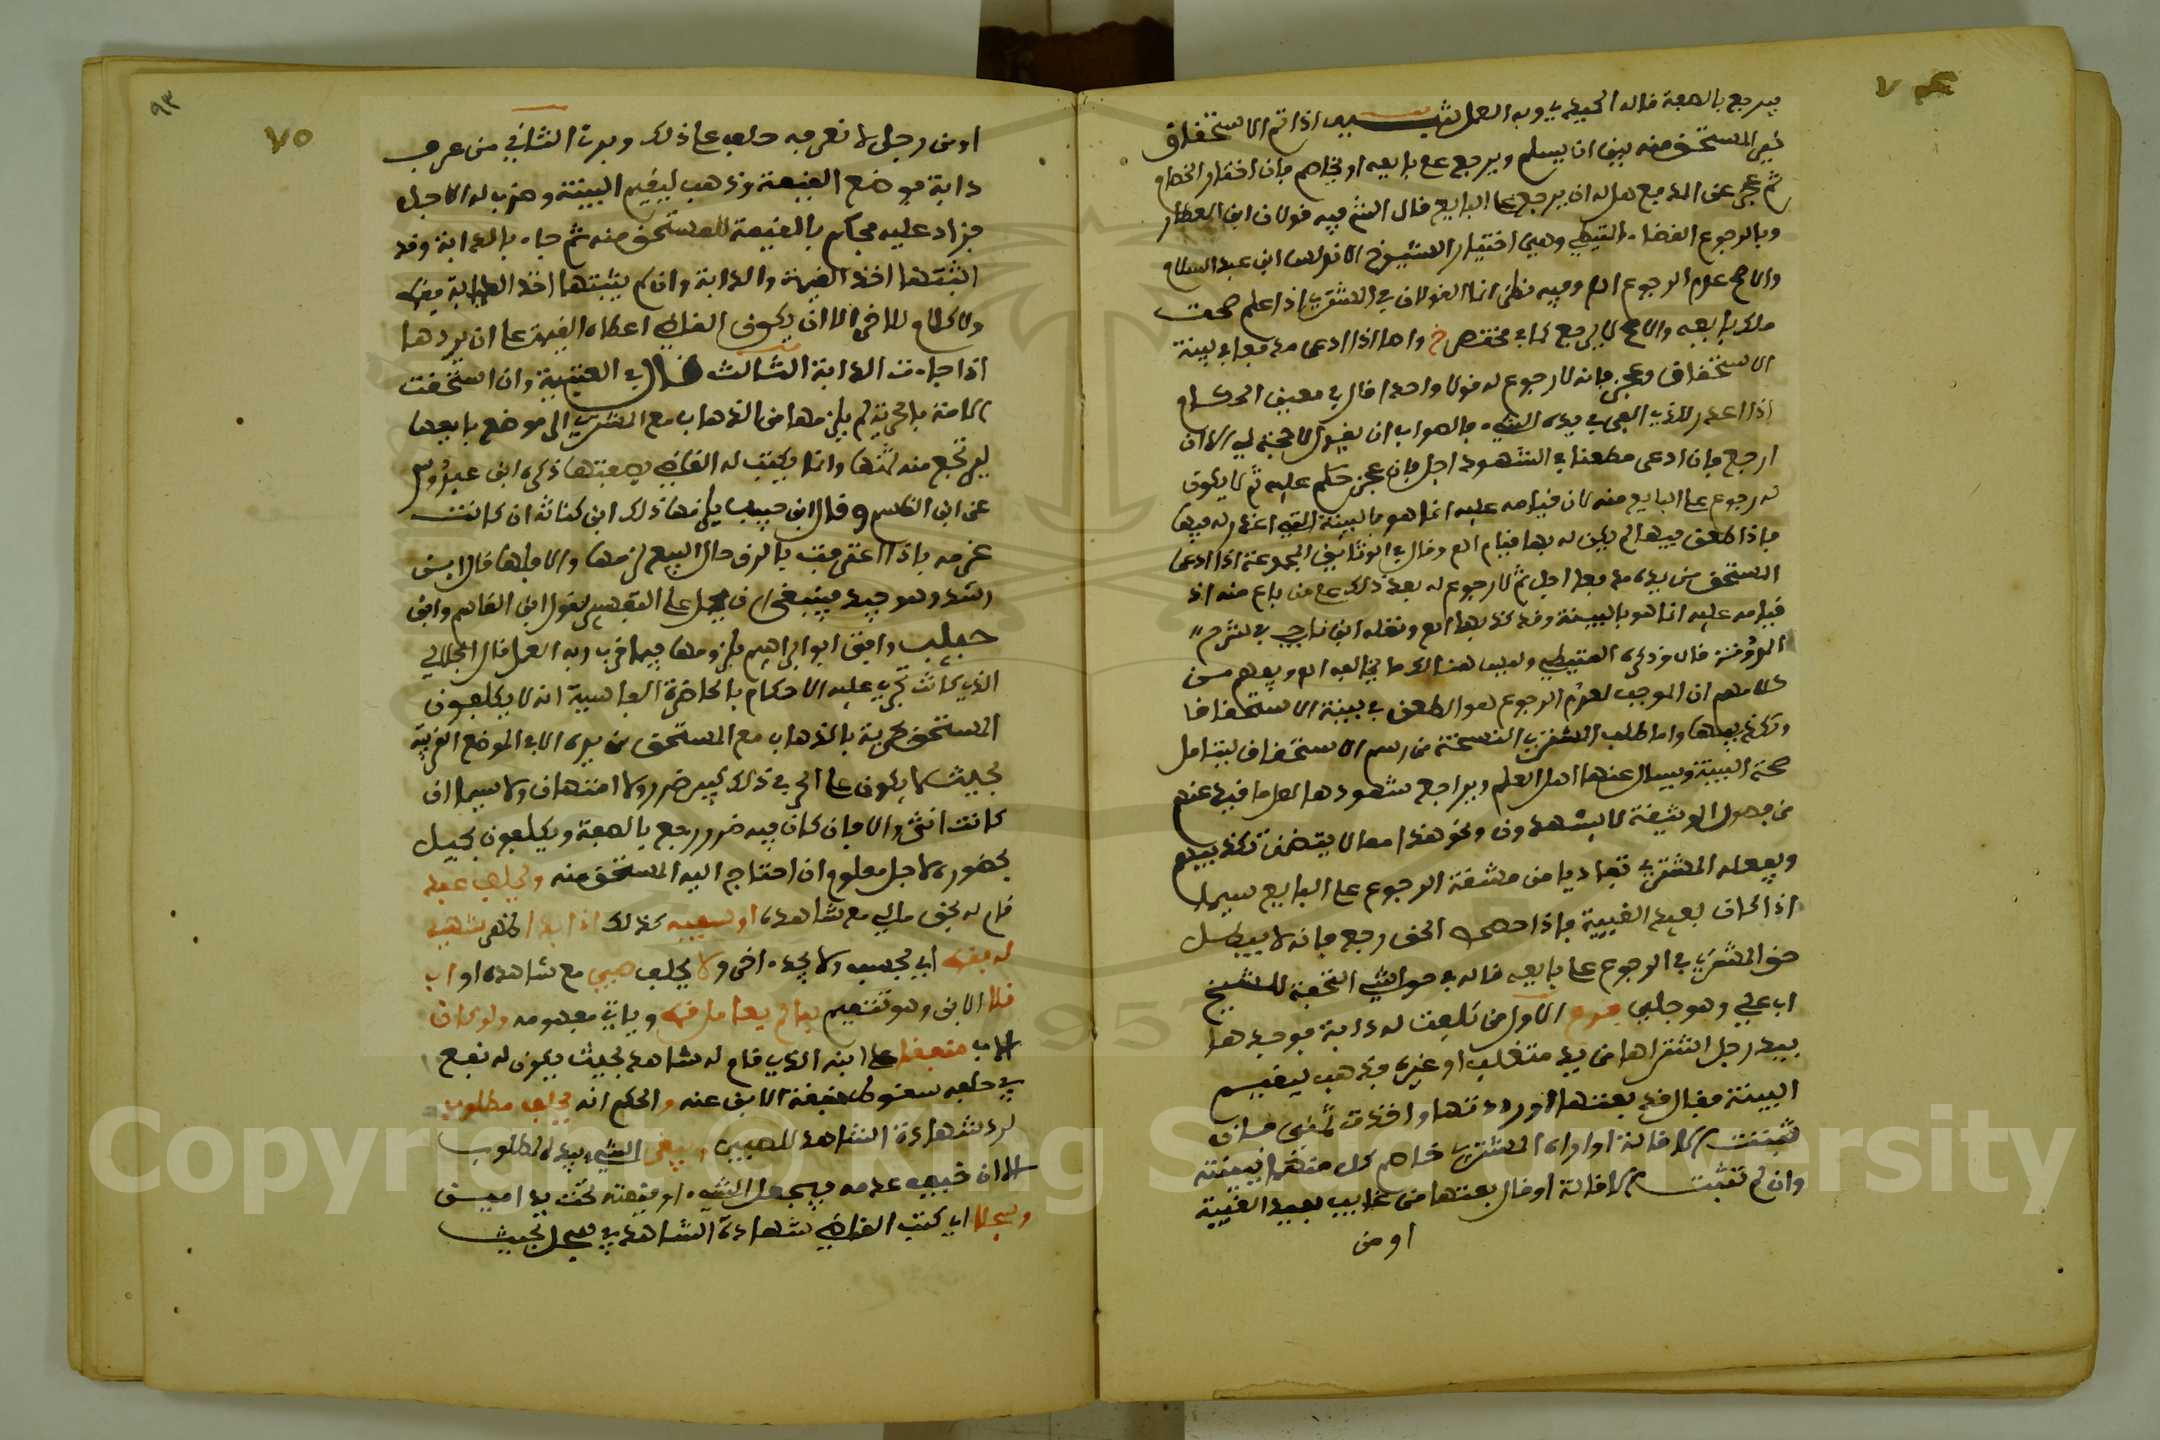 يرجع بالصفة قاله الجزيري وبه العمل تنبيه اذا تم الاستحقاق
خير المستحق منه بين ان يسلم ويرجع على بايعه او يخاصم فان اختار الخصام
ثم عجز عن المدفع هل له ان يرجع على البايع قال الش فيه قولان ابن العطار
وبالرجوع القضاء المتيطي وهي اختيار الشيوخ الاندلس ابن عبد السلام
والاصح عدم الرجوع الخ وفيه نظر انما القولان في المشتري اذا علم صحت
ملك بايعه والاصح لا يرجع كما في مختصر خ واما اذا ادعى مدفعا في بينة
الاستحقاق وعجز فانه لا رجوع له قولا واحدا قال في معين الحكام
اذا اعذر للذي الفي في يده الشيء فالصواب ان يقول لا حجة لي الا ان
ارجع فان ادعى مطعنا في الشهود اجل فان عجز حكم عليه ثم لا يكون
له رجوع على البايع منه لان قيامه عليه انما هو بالبينة التي اعذر له فيها
فاذا طعن فيها لم يكن له بها قيام الخ وقال في الوثائق المجموعة اذا ادعى
المستحق من يده مدفعا اجل ثم لا رجوع له بعد ذلك على من باع منه اذ
قيامه عليه انما هو بالبينة وقد كذبها الخ ونقله ابن ناجي في شرح
المدونة قال وذكره المتيطي وليس هنالك ما يخالفه الخ ويفهم من
كلامهم ان الموجب لعدم الرجوع هو الطعن في بينة الاستحقاق
وتكذيبها واما طلب المشتري النسخة من رسم الاستحقاق ليتامل
صحة البينة ويسال عنها اهل العلم ويراجع شهودها لعل ما قيد عنهم
من فصول الوثيقة لا يشهدون ونحو هذا مما لا يتضمن تكذيبهم
ويفعله المشتري تفاديا من مشقة الرجوع على البايع سيما
اذا كان بعيد الغيبة فاذا حصحص الحق رجع فانه لا يبطل
حق المشتري في الرجوع على بايعه قاله في حواشي التحفة للشيخ
ابي علي وهو جلي فروع الاول من تلفت له دابة فوجدها
بيد رجل اشتراها من يد متغلب او غيره فذهب ليقيم
البينة فقال قد بعتها او رددتها واخذت ثمني فان
ثبتت الاقالة او اراه المشتري خاصم كل منهما ببينته
وان لم تثبت الاقالة او قال بعتها من غايب بعيد الغيبة
او من
٩٣
٧٥
او من رجل لا نعرفه حلف على ذلك وبرئ الثاني من عرف
دابة فوضع القيمة وذهب ليقيم البينة وضرب له الاجل
فزاد عليه فحكم بالقيمة للمستحق منه ثم جاء بالدابة وقد
اثبتها اخذ القيمة والدابة وان لم يثبتها اخذ الدابة فقط
ولا كلام للاخر الا ان يكون القاضي اعطاه القيمة على ان يردها
اذا جاءت الدابة الثالث قال في العتبية وان استحقت
الامة بالحرية لم يلزمها من الذهاب مع المشتري الى موضع بايعها
ليرتجع منه ثمنها وانما يكتب له القاضي بصفتها ذكره ابن عبدوس
عن ابن القاسم وقال ابن حبيب يلزمها ذلك ابن كنانة ان كانت
غرمه باذا اعترفت بالرق حال البيع لزمها والا فلها قال ابن
رشد وهو جيد فينبغي ان يحمل على التفسير لقول ابن القاسم وابن
حبيب وافتى ابو ابراهيم بلزومها فيما قرب وبه العمل قال الجلالي
الذي كانت تجري عليه الاحكام بالحاضرة الفاسية انه لا يكلفون
المستحق بحرية بالذهاب مع المستحق من يده الا في الموضع القريب
بحيث لا يكون على الحر في ذلك كبير ضرر ولا امتهان ولا سيما ان
كانت انثى والا فان كان فيه ضرر رجع بالصفة ويكلفون بحميل
بحضوره لاجل معلوم ان احتاج اليه المستحق منه وليحلف عبد
قام له بحق مالي مع شاهده او سفيه كذلك
له فقط اي لا يحبسه ولا يجده اخر ولا يحلف صبي مع شاهده او اب
قلا الابن وهو تتميم وياتي مفهومه ولو كان
الاب منفقا على ابنه الذي قام له شاهد بحيث يكون له نفع
في حلفه سقوط نفقة الابن عنه والحكم انه يحلف مطلوب
لرد شهادة الشاهد للصبي ويبقى الشيء بيد المطلوب
الا ان خيف عدمه فيجعل الشيء او قيمته تحت يد امين
وسجلا اي كتب القاضي شهادة الشاهد في سجل بحيث